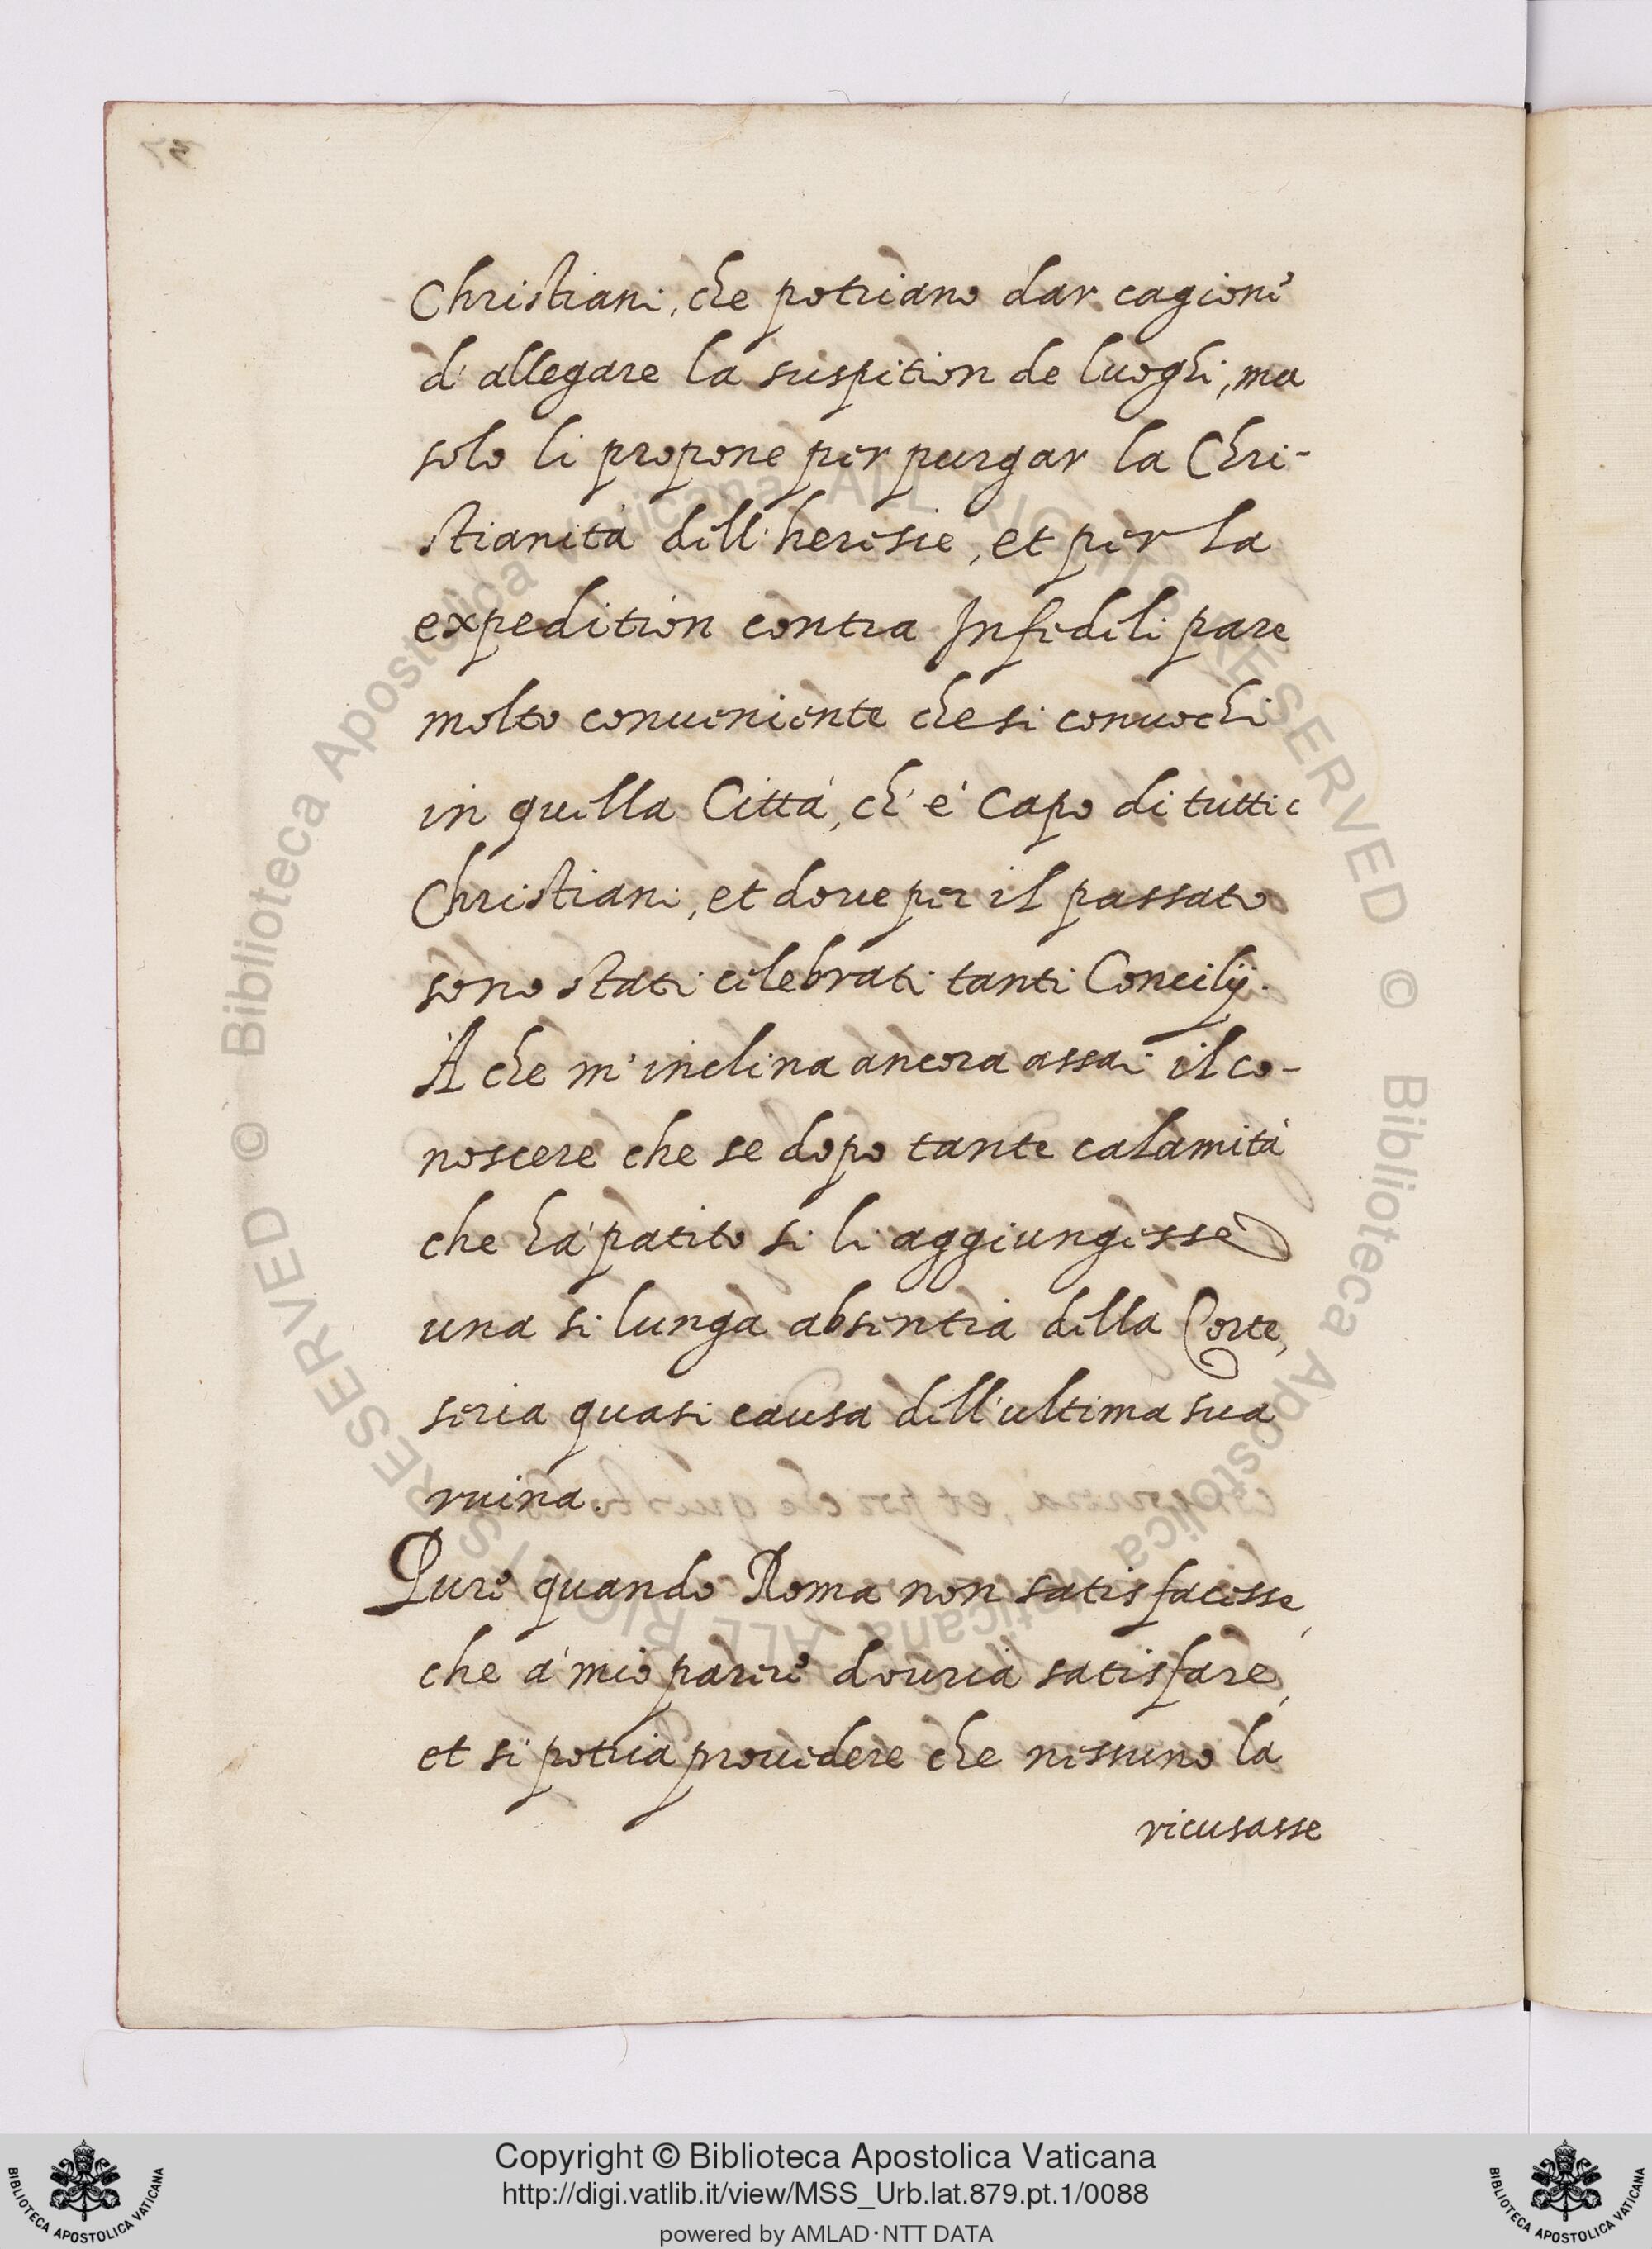 Christiani, che potriano dar cagione
d'allegare la suspition de luoghi, ma
solo li propone per purgar la Chri-
stianità dell'heresie, et per la
expedition contra Infedeli pare
molto conueniente che si conuochi
in quella Città, ch'è Capo di tutti i
Christiani, et doue per il passato
sono stati celebrati tanti Concilij.
A che m'inclina ancora assai il co-
noscere che se dopo tante calamità
che hà patito si li aggiungesse
una si lunga absentia della Corte,
seria quasi causa dell'ultima sua
ruina.
Pure quando Roma non satisfacesse,
che à mio parere douria satisfare,
et si potria prouedere che nessuno la
ricusasse
37
© Biblioteca Apostolica Vaticana ALL RIGHTS RESERVED © Biblioteca Apostolica Vaticana ALL RIGHTS RESERVED
Copyright © Biblioteca Apostolica Vaticana
http://digi.vatlib.it/view/MSS_Urb.lat.879.pt.1/0088
powered by AMLAD·NTT DATA
BIBLIOTECA APOSTOLICA VATICANA
BIBLIOTECA APOSTOLICA VATICANA